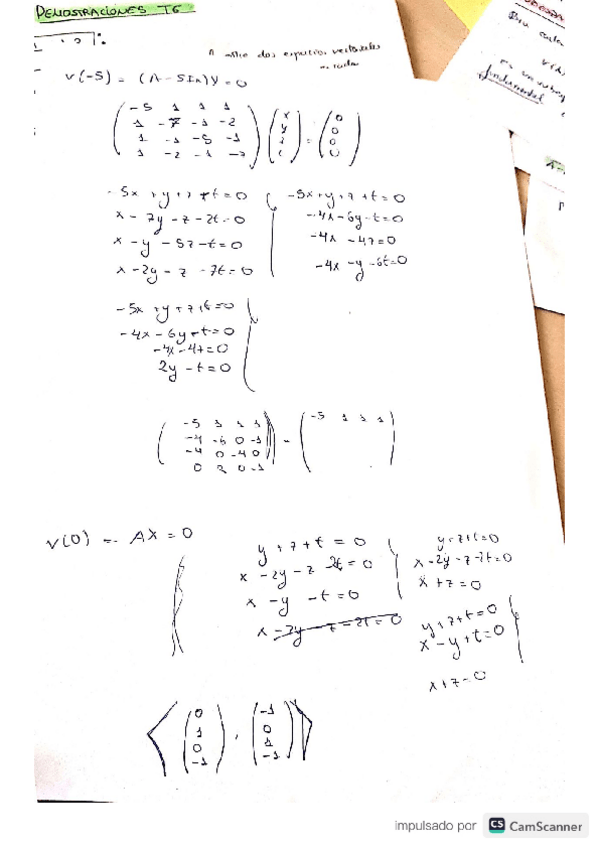 DEMOSTRACIONES T6
A
dos espacios vectoriales
V(-5) = (A - 5In)Y = 0
-5 1 1 1
1 -7 -1 -2
1 -1 -5 -1
1 -2 -1 -7
x
y
z
t
=
0
0
0
0
-5x + y + z + t = 0
x - 7y - z - 2t = 0
x - y - 5z - t = 0
x - 2y - z - 7t = 0
-5x + y + z + t = 0
-4x - 6y - t = 0
-4x - 4z = 0
-4x - y - 6t = 0
-5x + y + z + t = 0
-4x - 6y - t = 0
-4x - 4z = 0
2y - t = 0
-5 1 1 1
-4 -6 0 -1
-4 0 -4 0
0 2 0 -1
-5 1 1 1
V(0) = AX = 0
y + z + t = 0
x - 2y - z 2t = 0
x - y - t = 0
x - 2y - z - 2t = 0
y + z + t = 0
x - 2y - z - 2t = 0
x + z = 0
y + z + t = 0
x - y + t = 0
x + z = 0
0
1
0
-1
,
-1
0
1
-1
fundamental
impulsado por CS CamScanner